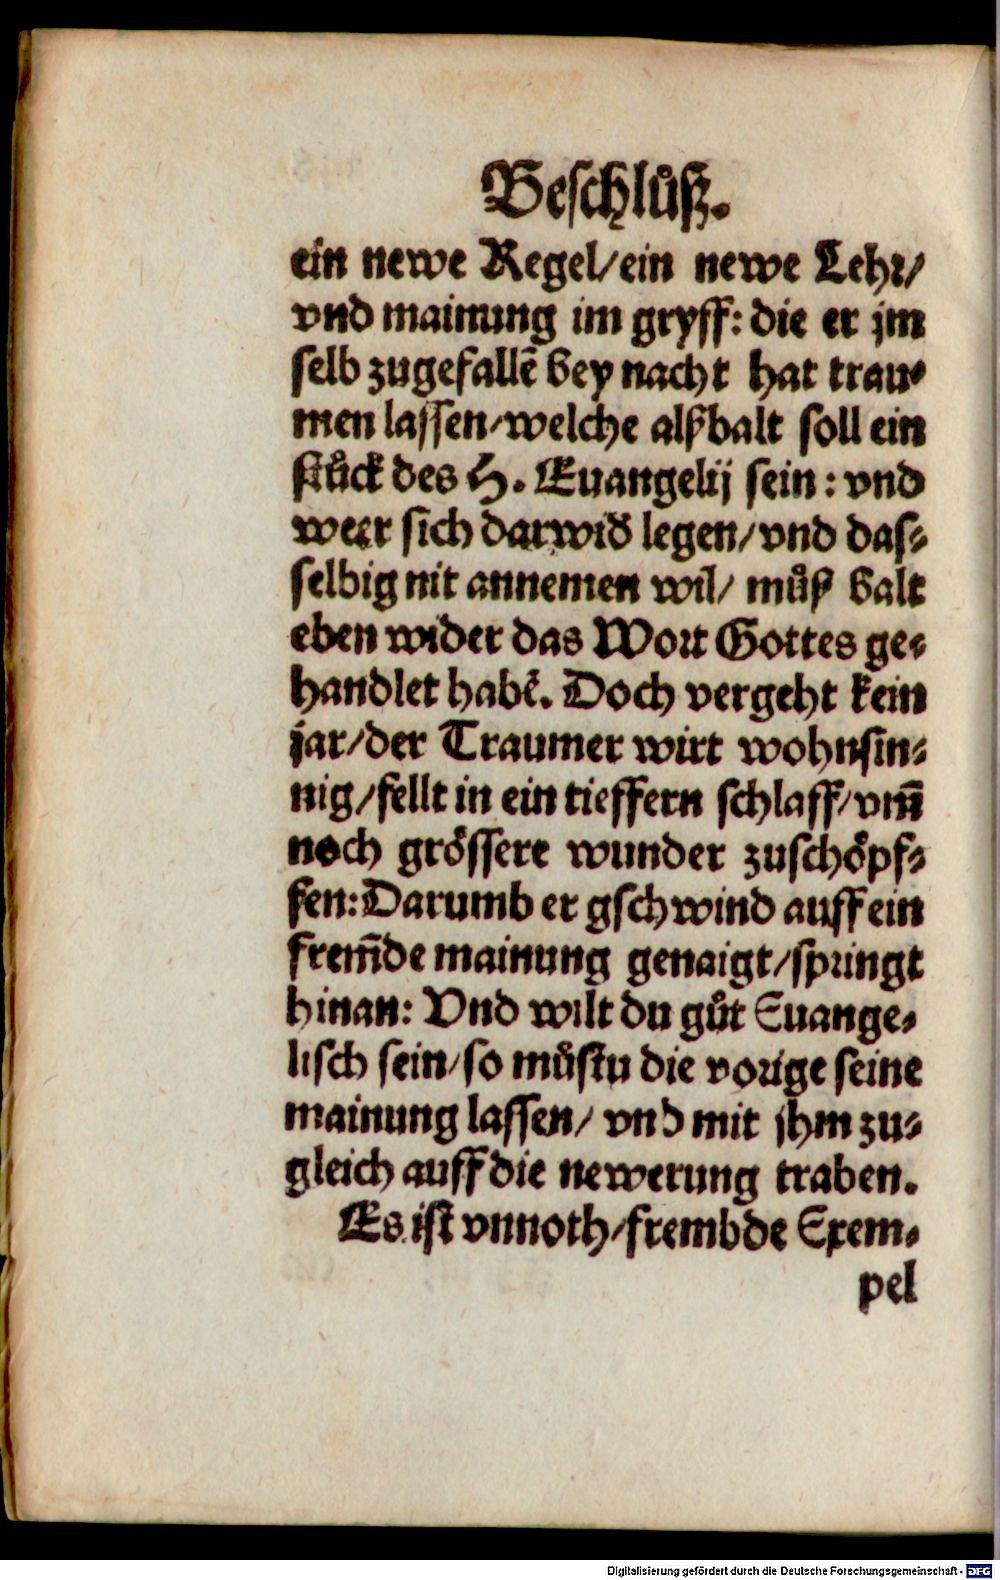 Beſchlůſz.
ein newe Regel/ein newe Lehr/
vnd mainung im gryff: die er jm
ſelb zugefallẽ bey nacht hat trau⸗
men laſſen/welche alſzbalt ſoll ein
ſtůck des H. Euangelij ſein: vnd
weer ſich darwid̃ legen/vnd daſ⸗
ſelbig nit annemen wil/ můſz balt
eben wider das Wort Gottes ge⸗
handlet habẽ. Doch vergeht kein
jar/der Traumer wirt wohnſin⸗
nig/fellt in ein tieffern ſchlaff/vm̃
noch gröſſere wunder zuſchöpf⸗
fen: Darumb er gſchwind auff ein
frem̃de mainung genaigt/ſpringt
hinan: Vnd wilt du gůt Euange⸗
liſch ſein/ſo můſtu die vorige ſeine
mainung laſſen/ vnd mit jhm zu⸗
gleich auff die newerung traben.
Es iſt vnnoth/frembde Exem⸗
pel
Digitalisierung gefördert durch die Deutsche Forschungsgemeinschaft - DFG